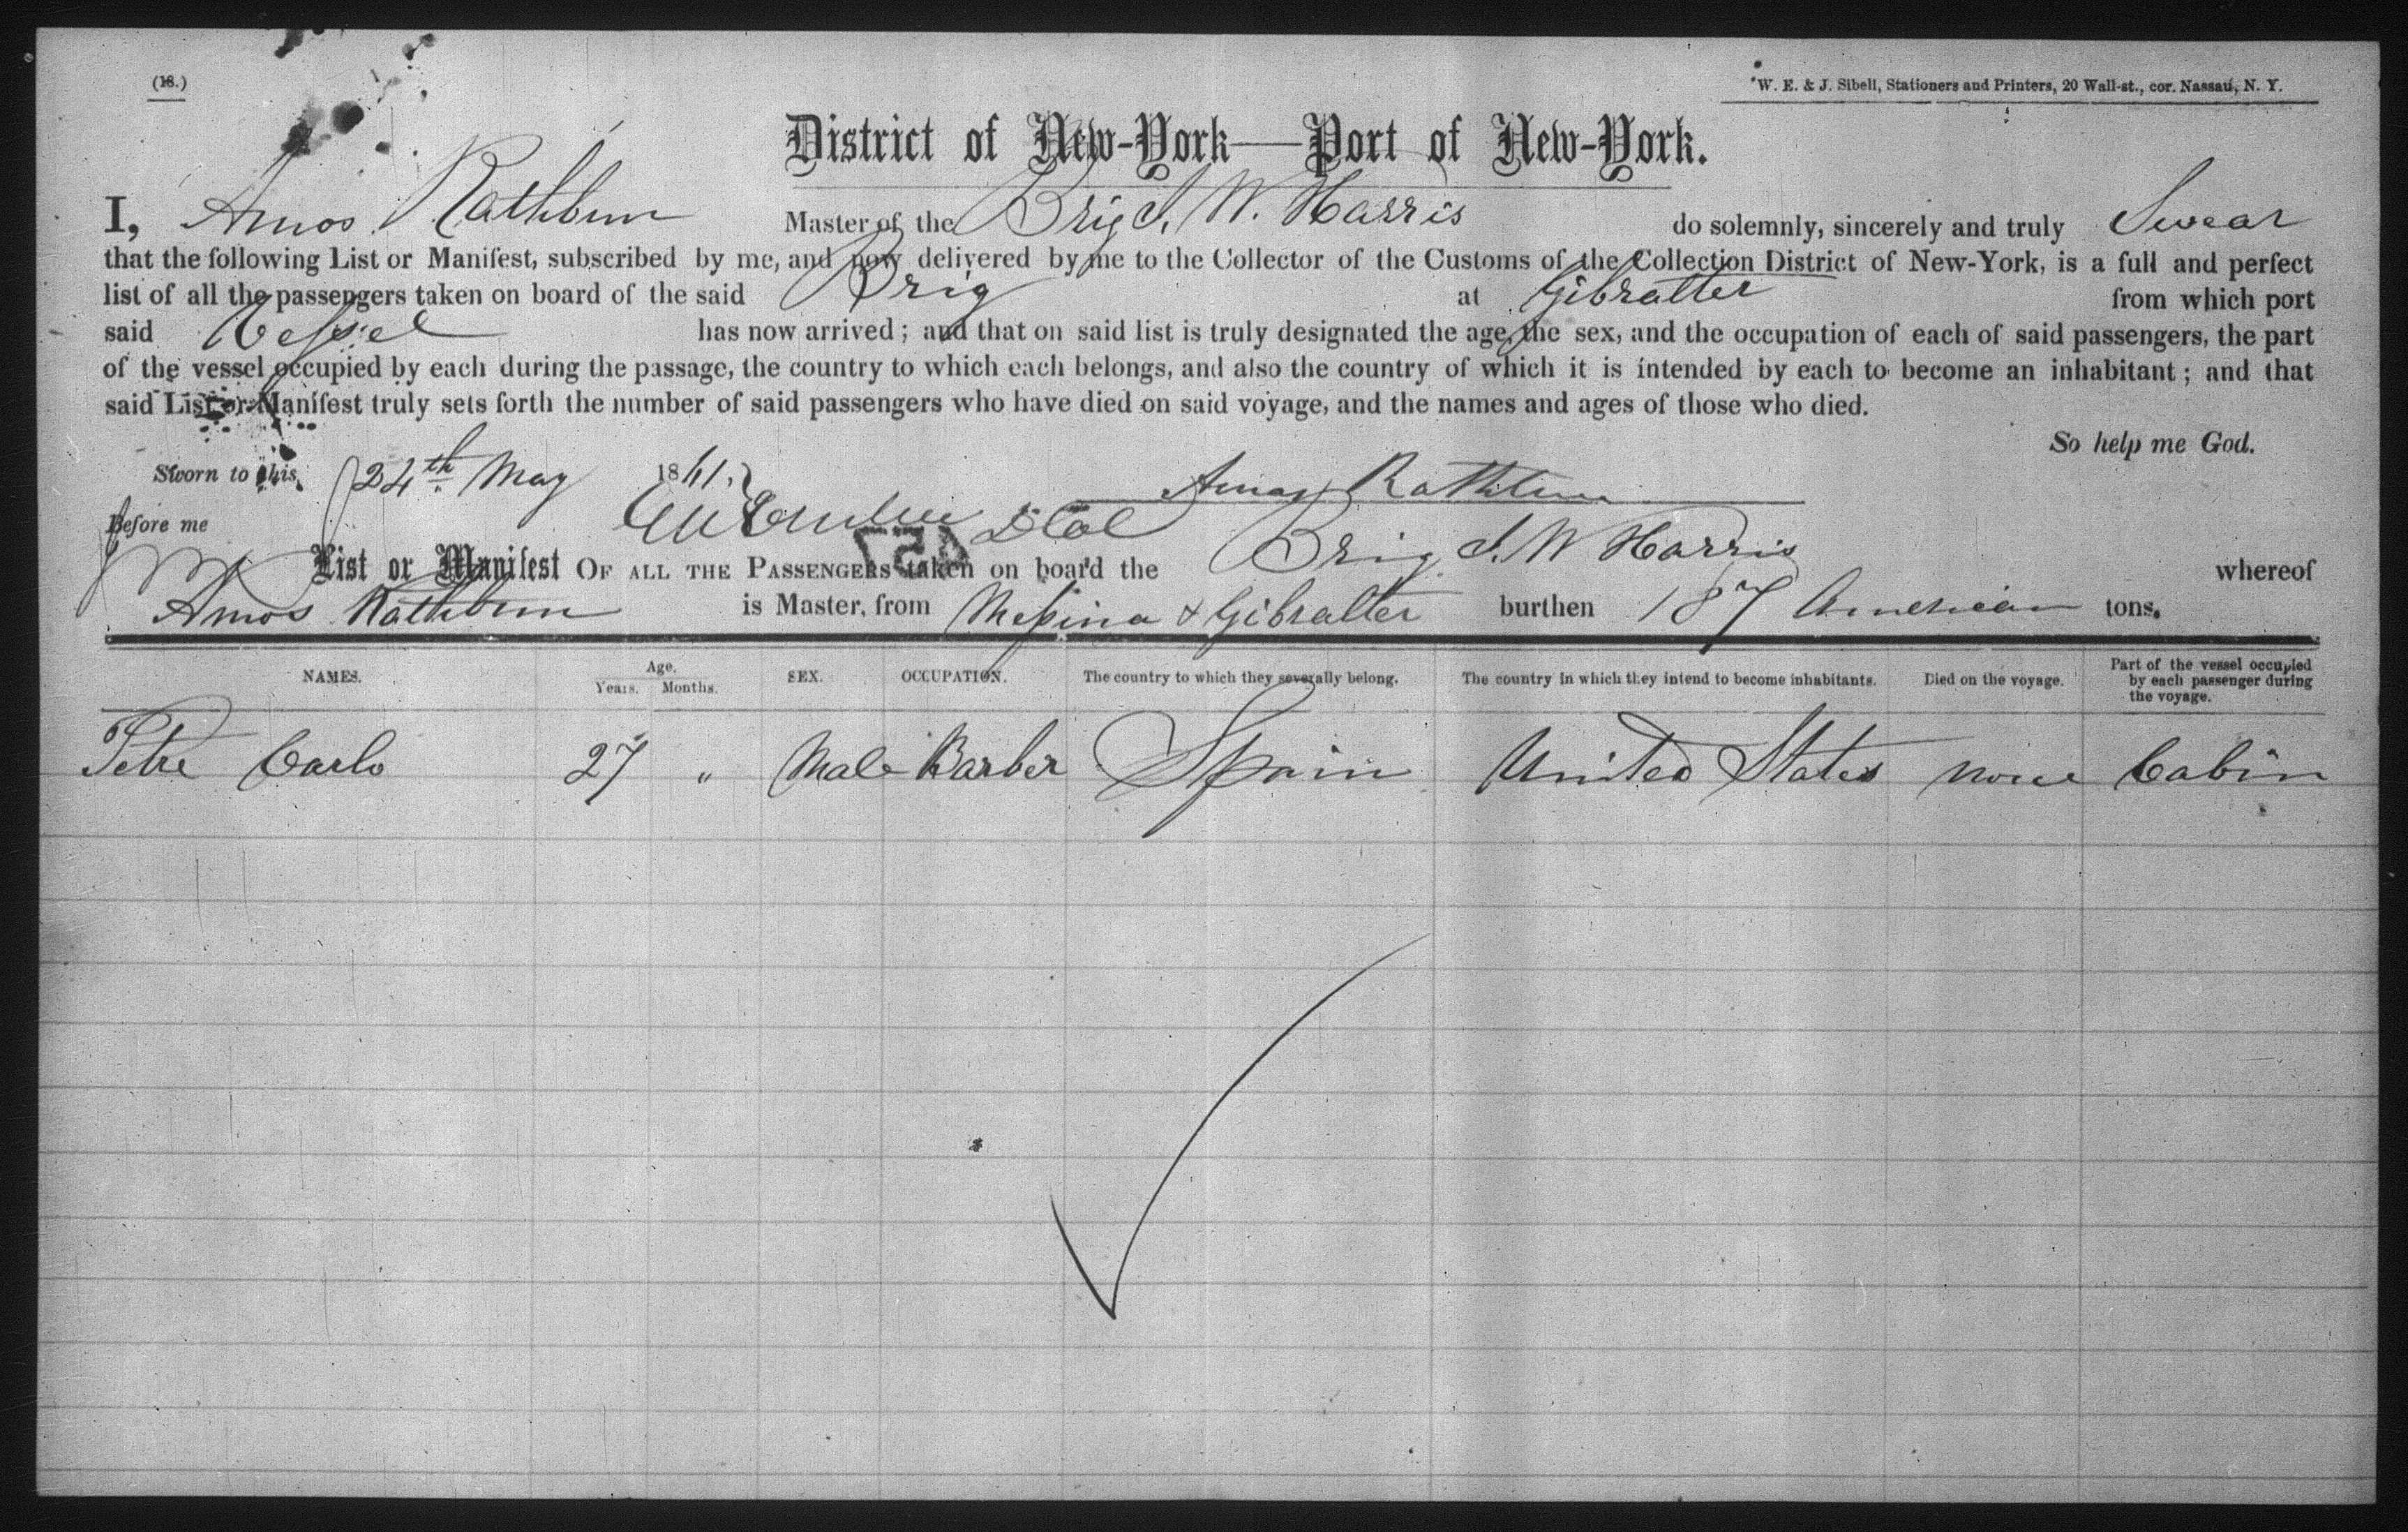 (18.)
W. E. & J. Sibell, Stationers and Printers, 20 Wall-st., cor. Nassau, N. Y.
District of New-York—Port of New-York.
I, Amos Rathbun Master of the Brig J. W. Harris do solemnly, sincerely and truly Swear
that the following List or Manifest, subscribed by me, and now delivered by me to the Collector of the Customs of the Collection District of New-York, is a full and perfect
list of all the passengers taken on board of the said Brig at Gibralter from which port
said Vessel has now arrived; and that on said list is truly designated the age, the sex, and the occupation of each of said passengers, the part
of the vessel occupied by each during the passage, the country to which each belongs, and also the country of which it is intended by each to become an inhabitant; and that
said List or Manifest truly sets forth the number of said passengers who have died on said voyage, and the names and ages of those who died.
So help me God.
Sworn to this 24th May 1861, Amos Rathbun
Before me D Col
List or Manifest OF ALL THE PASSENGERS taken on board the Brig J. W Harris whereof
Amos Rathbun is Master, from Messina & Gibralter burthen 187 American tons.
NAMES. Age. Years. Months. SEX. OCCUPATION. The country to which they severally belong. The country in which they intend to become inhabitants. Died on the voyage. Part of the vessel occupied by each passenger during the voyage.
Petre Carlo 27 " Male Barber Spain United States none Cabin